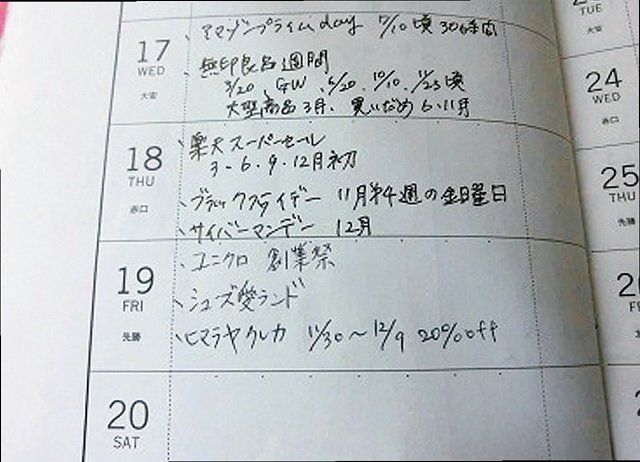 17
WED
大安
アマゾンプライムday 7/10頃 30時間
無印良品週間
3/20、GW、6/20、10/10、11/23頃
大型商品3月、買いだめ6・11月
18
THU
赤口
楽天スーパーセール
3・6・9・12月初
ブラックフライデー 11月第4週の金曜日
サイバーマンデー 12月
19
FRI
先勝
ユニクロ 創業祭
シューズ愛ランド
ヒマラヤクレカ 11/30〜12/9 20%off
20
SAT
TUE
大安
24
WED
赤口
25
THU
先勝